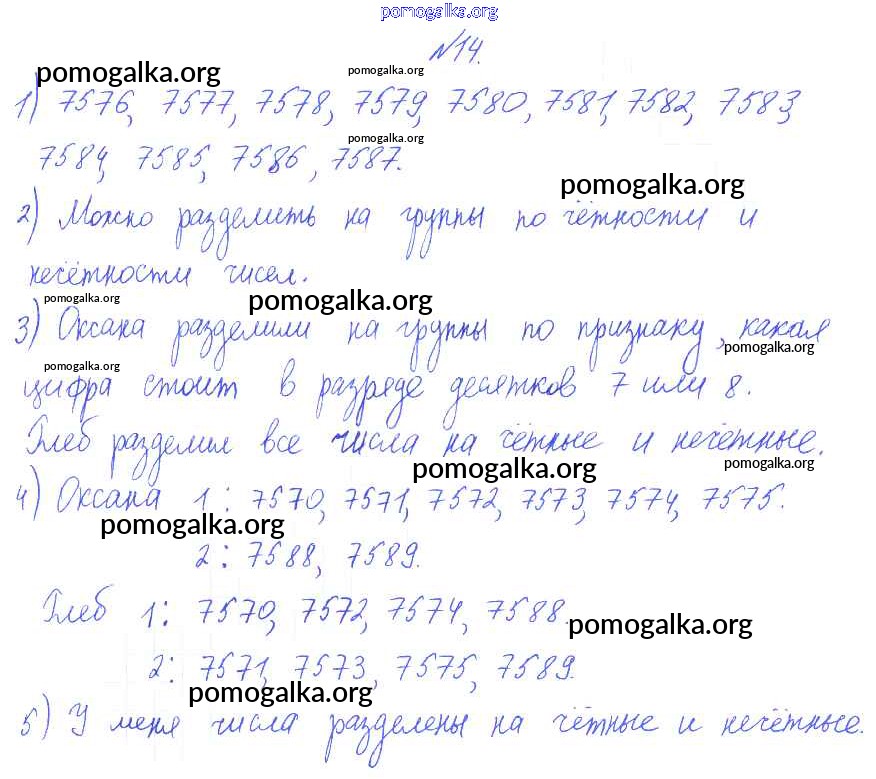 pomogalka.org
№14.
pomogalka.org pomogalka.org
1) 7576, 7577, 7578, 7579, 7580, 7581, 7582, 7583,
pomogalka.org
7584, 7585, 7586, 7587.
pomogalka.org
2) Можно разделить на группы по чётности и
нечётности чисел.
pomogalka.org pomogalka.org
3) Оксана разделили на группы по признаку, какая
pomogalka.org
pomogalka.org
цифра стоит в разряде десятков 7 или 8.
Глеб разделил все числа на чётные и нечётные.
pomogalka.org pomogalka.org
4) Оксана 1: 7570, 7571, 7572, 7573, 7574, 7575.
pomogalka.org
2: 7588, 7589.
Глеб 1: 7570, 7572, 7574, 7588.
pomogalka.org
2: 7571, 7573, 7575, 7589.
pomogalka.org
5) У меня числа разделены на чётные и нечётные.